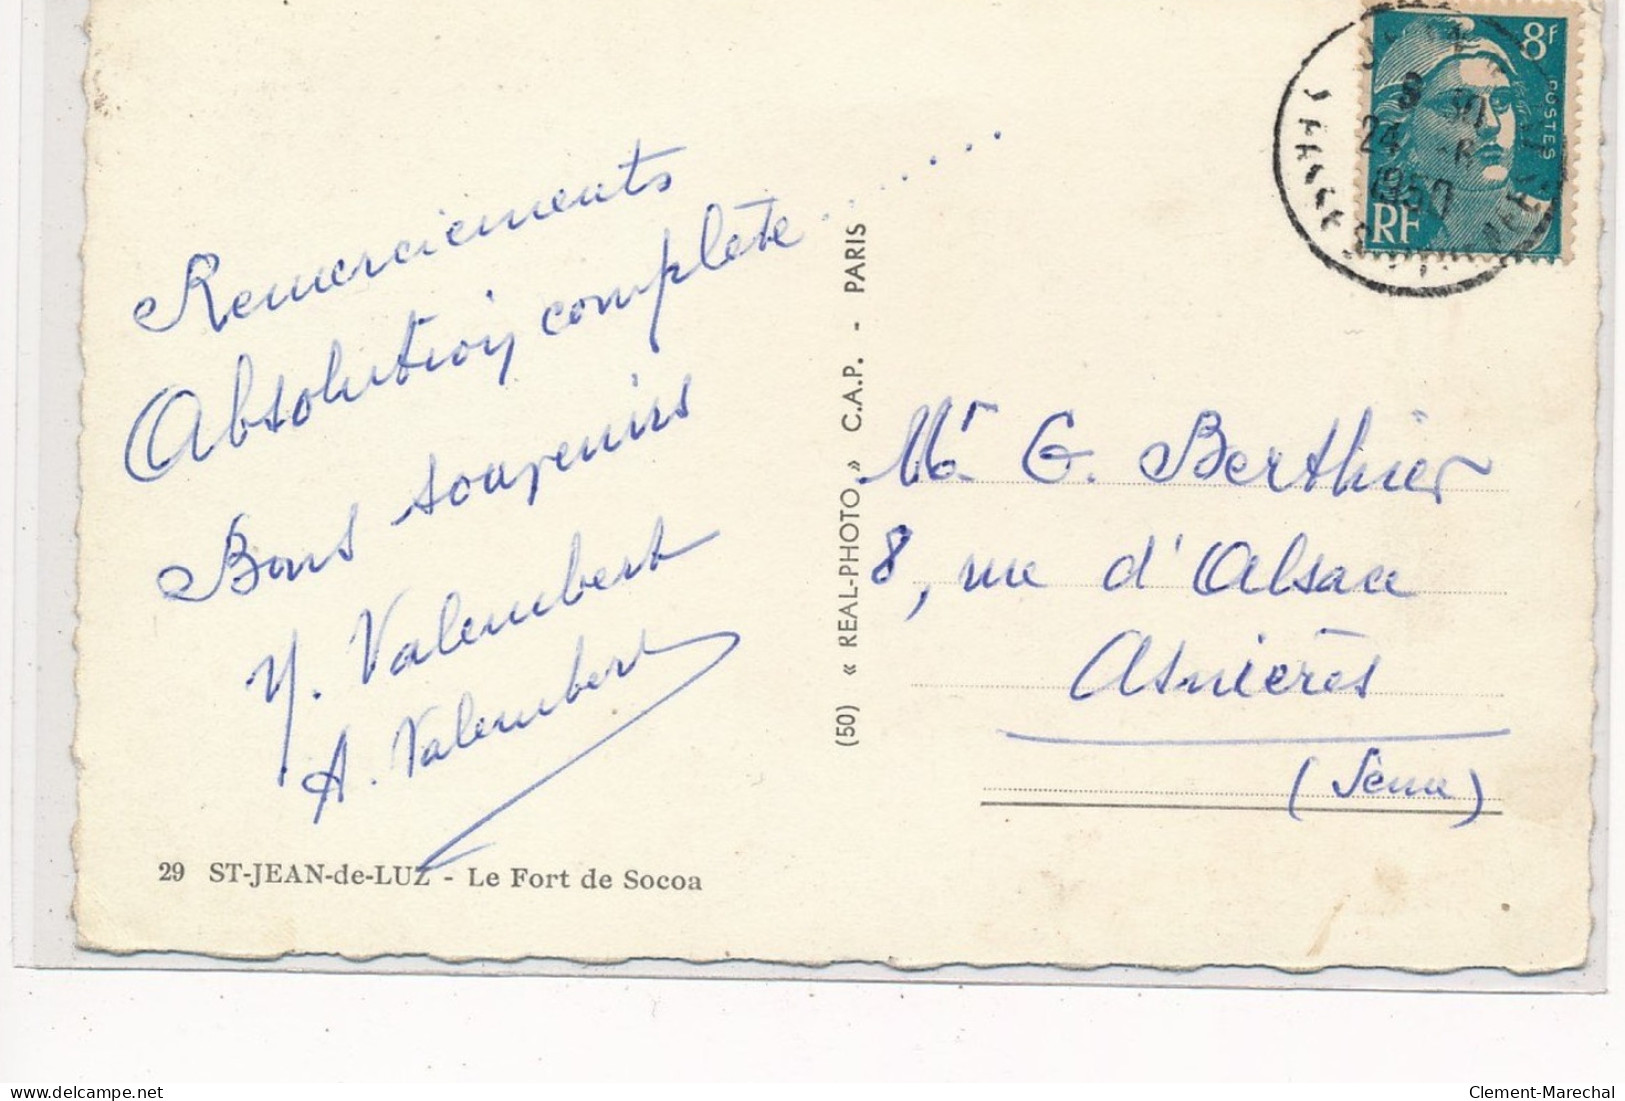 Remerciements
Absolution complète......
Bons souvenirs
Y. Valembert
A. Valembert
29 ST-JEAN-de-LUZ - Le Fort de Socoa
(50) « REAL-PHOTO » C.A.P. - PARIS
8F
POSTES
RF
24 -6
1950
Mr G. Berthier
8, rue d'Alsace
Asnières
(Seine)
Clement-Marechal